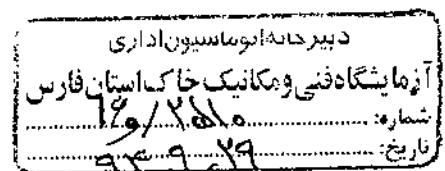 دبیرخانه اتوماسیون اداری
آزمایشگاه فنی و مکانیک خاک استان فارس
شماره:
تاریخ: ۹۳ ۹ ۲۹